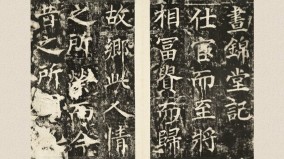 晝錦堂記
仕宦而至將
相富貴而歸
故鄉此人情
之所榮而今
昔之所